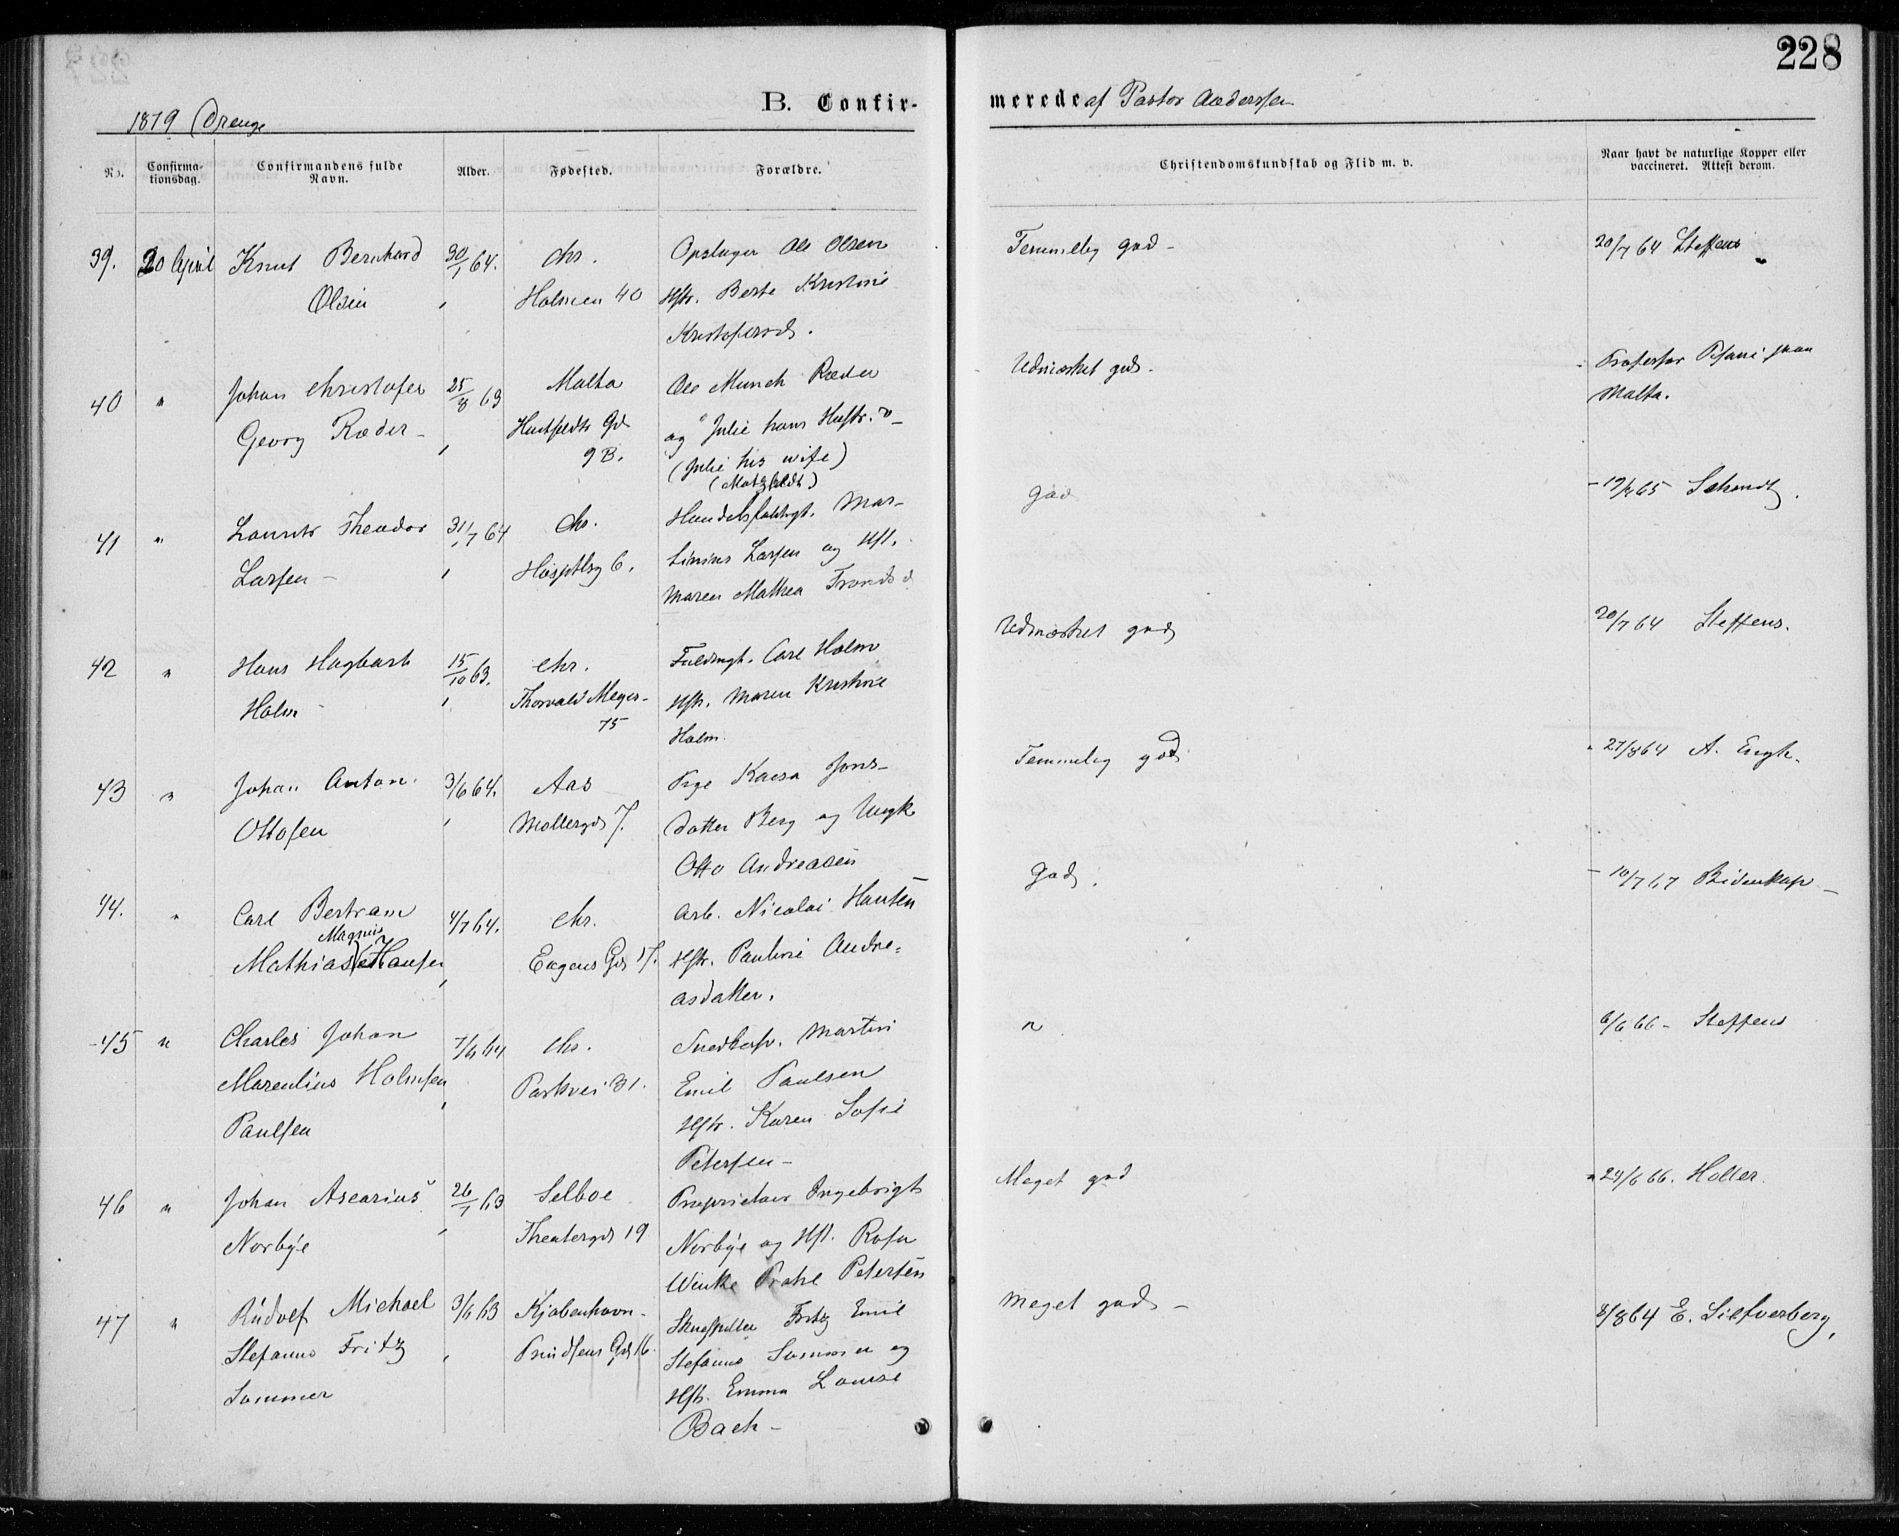 228
1879 Drenge
B. Confir-
merede af Pastor Anderssen
No.
Confirma-
tionsdag.
Confirmandens fulde
Navn.
Alder.
Fødested.
Forældre.
Christendomskundskab og Flid m. v.
Naar havt de naturlige Kopper eller
vaccineret. Attest derom.
39. 20 April Knut Bernhard 30/1 64. Chr. Opslager Ole Olsen Temmelig god - 20/7 64 Steffens
Olsen Holmen 40 Hstr. Berte Kristine
Kristofersd.
40 " Johan Christofer 25/8 63 Malta Ole Munch Ræder Udmærket god. Professor Pisani paa
Malta.
Georg Ræder - Gd. og "Julie hans Hustr."
9 B. (Julie his wife)
41 " Theodor 31/7 64 Chr. Mar- god 65
Larsen - 6. Larsen og Hst.
Maren Mathea
42 " Hans Hagbart 15/10 63. Chr. Fuldmgt. Carl Holm Udmærket god 20/7 64 Steffens.
Holm Thorvald Meyer- Hstr. Maren Kristine
75 Holm.
43 " Johan Anton 3/6 64. Aas Pige Kaesa Jons- Temmelig god 27/8 64 A. Engh.
Ottosen Møllergd 7. datter Berg og Ungk
Otto Andreasen
44. " Carl Bertram 4/7 64. Chr. Arb. Nicolai Hansen God. 10/7 67 Bidenkap -
Magnus
Mathias Hansen Gd 17. Hstr. Pauline Andre-
asdatter.
45 " Charles Johan 7/4 64 Chr. Snedkersv. Martin " 6/6 66 - Steffens
Marentius Holmsen Parkvei 31. Emil Paulsen
Paulsen Hstr. Karen Sofie
Petersen -
46 " Johan Ascarius 26/1 63 Selboe Proprietær Ingebrigt Meget god 24/6 66. Holler.
Norbye Theatergd 19 Norbye og Hst.
Petersen
47 " Rudolf Michael 3/6 63 Kjøbenhavn - Skuespiller Fritz Emil Meget god - 8/8 64 E. Silfverberg,
Stefanus Fritz Gd 16. Stefanus Sommer og
Sommer Hstr. Emma Louise
Bach -